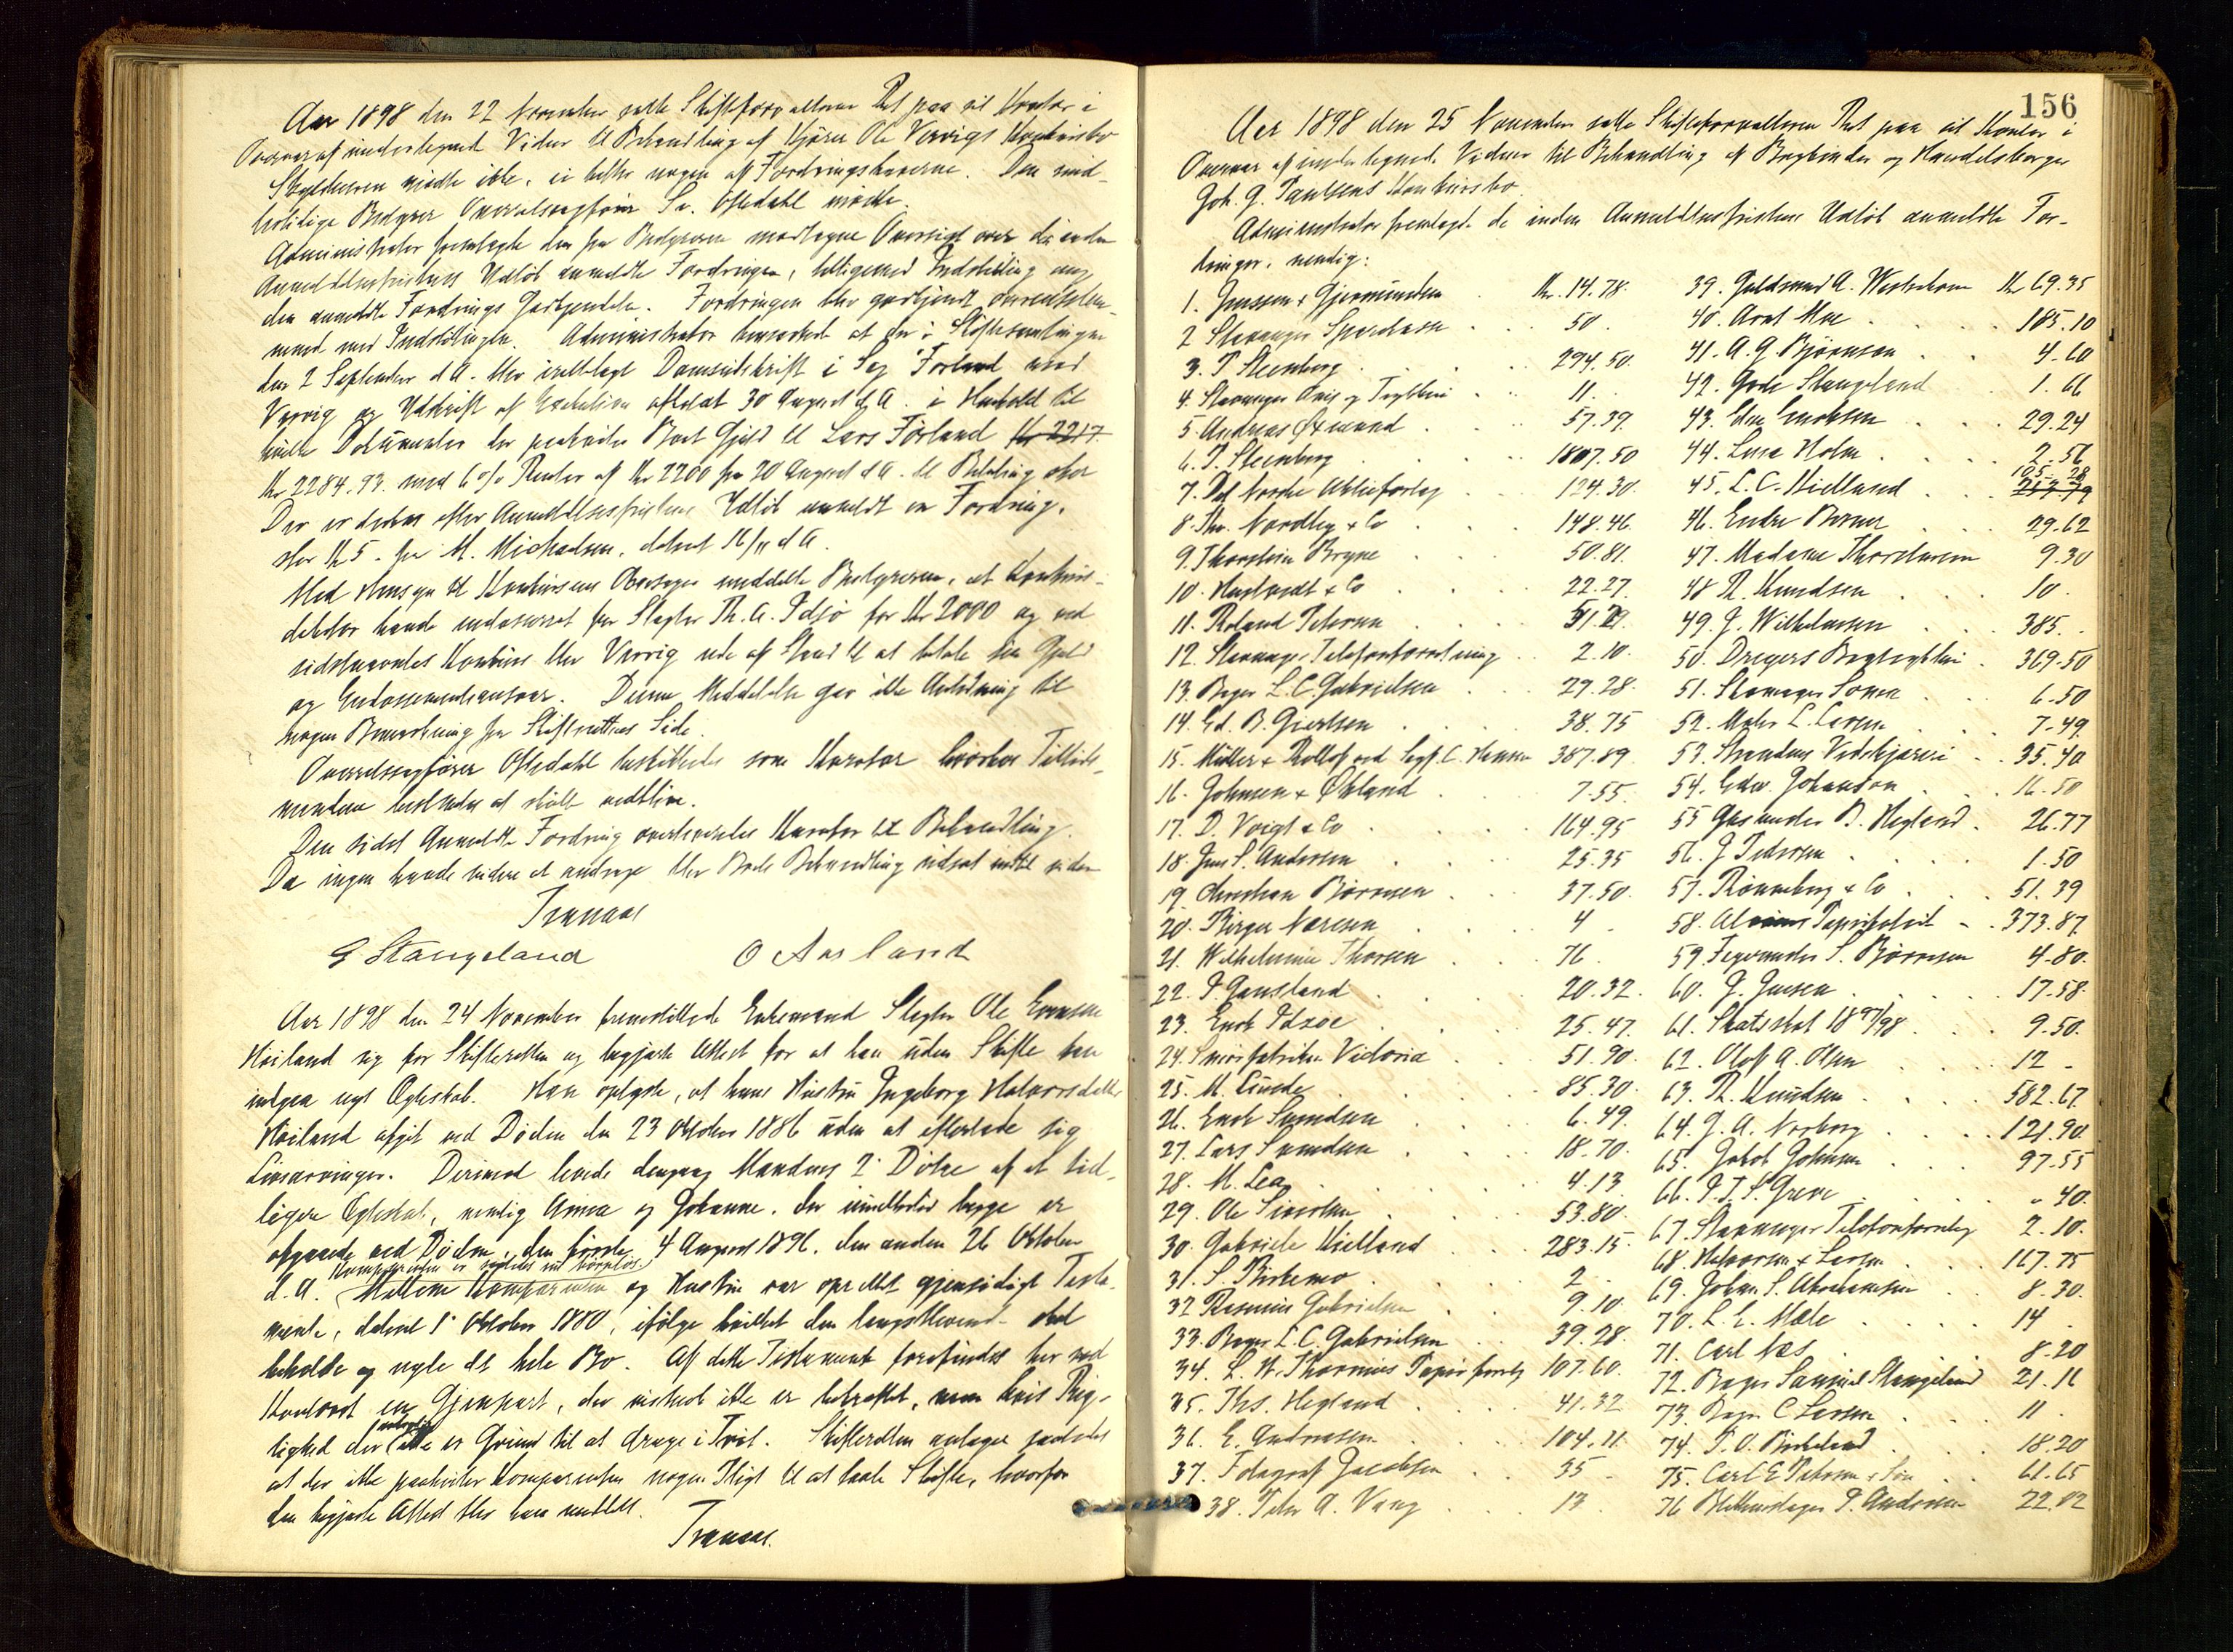 Aar 1898 den 22 November satte Skifteforvalteren Ret paa sit Kontor i
Overvær af undertegnede Vidner til Behandling af Kjører Ole Vervigs Konkursbo
Skyldneren mødte ikke, ei heller nogen af Fordringshaverne. Den mid-
lertidige Bestyrer Overretssagfører Sv. Oftedahl mødte.
Administrator fremlagde den fra Bestyreren modtagne Oversigt over de inden
Anmeldelsesfristens Udløb anmeldte Fordringer, tilligemed Indstilling ang
den anmeldte Fordrings Godkjendelse. Fordringen blev godkjendt overensstem-
mende med Indstillingen. Administrator bemærkede at der i Skiftesamlingen
den 2 September d A. blev irettelagt Domsudskrift i Sag Førland mod
Vervig og Udskrift af Exekution afholdt 30 August d A. i Henhold til
hvilke Dokumenter der paahviler Boet Gjeld til Lars Førland Kr 2217
Kr 2284.93. med 6 % Renter af Kr 2200 fra 20 August d A. til Betaling sker
Der er derhos efter Anmeldelsesfristens Udløb anmeldt en Fordring,
stor Kr 5. fra M. Michaelsen, datert 16/11 d A.
Med Hensyn til Konkursens Aarsager meddelte Bestyreren, at Konkurs-
debitor havde endosseret for Slagter Th. A. Idsø for Kr 2000 og ved
sidstnævntes Konkurs blev Vervig ude af Stand til at betale sin Gjeld
og Endossementsansvar. Denne Meddelelse gav ikke Anledning til
nogen Bemærkning fra Skifterettens Side.
Overretssagfører Oftedahl beskikkedes som Kurator hvorhos Tillids-
mændene besluttedes at skulle vedblive.
Den sidst Anmeldte Fordring overleveredes Kurator til Behandling.
Da ingen havde videre at andrage blev Boets Behandling udsat indtil videre
Tranaas
G Stangeland O Aarland
Aar 1898 den 24 November fremstillede Enkemand Slagter Ole Evensen
Høiland sig for Skifteretten og begjærte Attest for at han uden Skifte kan
indgaa nyt Ægteskab. Han oplyste, at hans Hustru Ingeborg Halvorsdatter
Høiland afgik ved Døden den 23 Oktober 1886 uden at efterlade sig
Livsarvinger. Derimod levede dengang Mandens 2 Døtre af et tid-
ligere Ægteskab, nemlig Anna og Johanne, der imidlertid begge er
afgaaede ved Døden, den første 4 August 1896, den anden 26 Oktober
Komparenten er saaledes nu barnløs
d. A. Mellem Komparenten og Hustru var oprettet gjensidigt Testa-
mente, dateret 1 Oktober 1880, ifølge hvilket den længstlevende skal
beholde og nyde det hele Bo. Af dette Testamente forefindes her ved
Kontoret en Gjenpart, der vistnok ikke er bekræftet, men hvis Rig-
tighed der ikke er Grund til at drage i Tvil. Skifteretten antager saaledes
at der ikke paahviler Komparenten nogen Pligt til at holde Skifte, hvorfor
den begjærte Attest blev ham meddelt.
Tranaas.
156
Aar 1898 den 25 November satte Skifteforvalteren Ret paa sit Kontor i
Overvær af undertegnede Vidner til Behandling af Bogbinder og Handelsborger
Joh. G. Paulsens Konkursbo.
Administrator fremlagde de inden Anmeldelsesfristens Udløb anmeldte For-
dringer, nemlig:
1. Jenssen & Gjermundsen Kr. 14.78.
2 Stavanger Sparekasse 50.
3. P Steenberg 294.50.
4. Stavanger Avis og Trykkeri 11.
5 Andreas Øxnevad 57.39.
6. P. Steenberg 1807.50
7. Det Norske Aktieforlag 124.30.
8. Thr. Nordbey & Co 148.46.
9. Thorstein Bryne 50.81.
10. Husbrandt & Co 22.27.
11. Roland Petersen 51.29.
12. Stavanger Telefonforretning 2.10.
13. Bager L. C. Gabrielsen 29.28.
14. Ed. B. Giertsen 38.75
15. Müller & Rolloff ved Sagf. C. Hansen 387.89
16. Johnsen & Økland 7.55.
17. D. Voigt & Co 164.95
18. Jens S. Andersen 25.35
19. Christian Bjørnsen 37.50.
20. Birger Næresen 4
21. Wilhelmine Thorsen 76.
22. P. Gausland 20.32.
23. Enok Idsøe 25.47.
24. Smørfabriken Victoria 51.90.
25. M. Lunde 85.30.
26. Enok Svendsen 6.49.
27. Lars Svendsen 18.70.
28. M. Lea 4.13
29. Ole Simonsen 53.80.
30. Gabriele Kielland 283.15.
31. S. Birkemo 2.
32 Rasmus Gabrielsen 9.10.
33. Bager L. C. Gabrielsen 39.28.
34. L. W. Thornes Papirforretg 107.60.
35. Ths. Hegland 41.32
36. E. Andreassen 104.11.
37. Fotograf Jacobsen 35.
38. Peder A. Vaag 13.
39. Guldsmed A. Westerheim Kr 69.35
40. Arnt Moe 185.10
41. A. G. Bjørnsen 4.60
42. Gode Stangeland 1.66
43. Edw Enoksen 29.24
44. Luisa Holm 2.56
45. L. C. Kielland 105.28
46. Endre Berner 29.62
47. Madame Thordarsen 9.30
48 R. Knudsen 10.
49. J. Wilhelmsen 385.
50. Dreyers Bogtrykkeri 369.50
51. Stavanger Søma 6.50
52. Maler L. Larsen 7.49.
53. Strandens Vedskjæreri 35.40
54. Edw. Johanson 16.50
55 Gasmester B. Hegland 26.77
56. J Pedersen 1.50
57. Rønneberg & Co 51.39
58. Papirfabrik 373.87.
59 Fegermester S. Bjørnsen 4.80.
60. J. Jensen 17.58.
61. Statsskat 1897/98 9.50.
62. Olof A. Olsen 12
63. R. Knudsen 582.67.
64. J. A. Norberg 121.90.
65. Jakob Johnsen 97.55
66. P. T. S. Greve 40.
67. Stavanger Telefonforretg 2.10.
68. Halvorsen & Larsen 167.75
69. Johan S. Abrahamsen 8.30.
70. L. E. Mæle 14.
71. Carl Næs 8.20
72. Bager Samuel Stangeland 21.16
73. Bager C Larsen 11.
74. T. O. Birkeland 18.20
75. Carl E Petersen & Søn 61.65
76 Blikkenslager P. Andersen 22.02